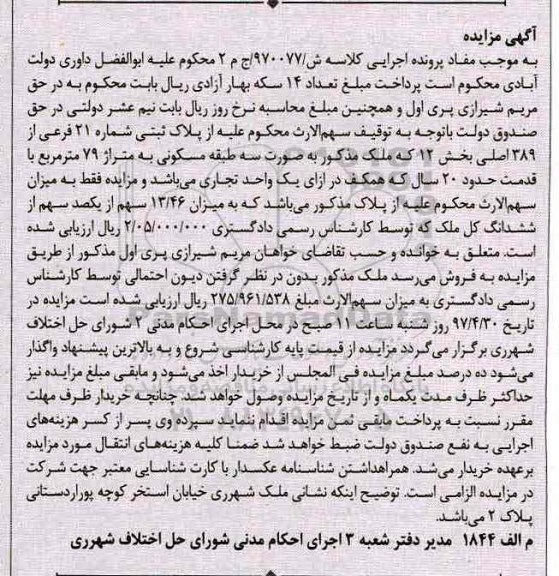 آگهی مزایده
به موجب مفاد پرونده اجرایی کلاسه ش/۹۷۰۰۷۷/ج م ۲ محکوم علیه ابوالفضل داوری دولت
آبادی محکوم است پرداخت مبلغ تعداد ۱۴ سکه بهار آزادی ریال بابت محکوم به در حق
مریم شیرازی پری اول و همچنین مبلغ محاسبه نرخ روز ریال بابت نیم عشر دولتی در حق
صندوق دولت باتوجه به توقیف سهم‌الارث محکوم علیه از پلاک ثبتی شماره ۲۱ فرعی از
۳۸۹ اصلی بخش ۱۲ که ملک مذکور به صورت سه طبقه مسکونی به متراژ ۷۹ مترمربع با
قدمت حدود ۲۰ سال که همکف در ازای یک واحد تجاری می‌باشد و مزایده فقط به میزان
سهم‌الارث محکوم علیه از پلاک مذکور می‌باشد که به میزان ۱۳/۴۶ سهم از یکصد سهم از
ششدانگ کل ملک که توسط کارشناس رسمی دادگستری ۲/۰۵۰/۰۰۰/۰۰۰ ریال ارزیابی شده
است. متعلق به خوانده و حسب تقاضای خواهان مریم شیرازی پری اول مذکور از طریق
مزایده به فروش می‌رسد ملک مذکور بدون در نظر گرفتن دیون احتمالی توسط کارشناس
رسمی دادگستری به میزان سهم‌الارث مبلغ ۲۷۵/۹۶۱/۵۳۸ ریال ارزیابی شده است مزایده در
تاریخ ۹۷/۴/۳۰ روز شنبه ساعت ۱۱ صبح در محل اجرای احکام مدنی ۲ شورای حل اختلاف
شهرری برگزار می‌گردد مزایده از قیمت پایه کارشناسی شروع و به بالاترین پیشنهاد واگذار
می‌شود ده درصد مبلغ مزایده فی المجلس از خریدار اخذ می‌شود و مابقی مبلغ مزایده نیز
حداکثر ظرف مدت یکماه و از تاریخ مزایده وصول خواهد شد. چنانچه خریدار ظرف مهلت
مقرر نسبت به پرداخت مابقی ثمن مزایده اقدام ننماید سپرده وی پسر از کسر هزینه‌های
اجرایی به نفع صندوق دولت ضبط خواهد شد ضمنا کلیه هزینه‌های انتقال مورد مزایده
برعهده خریدار می‌شد. همراه‌داشتن شناسنامه عکسدار با کارت شناسایی معتبر جهت شرکت
در مزایده الزامی است. توضیح اینکه نشانی ملک شهرری خیابان استخر کوچه پوراردستانی
پلاک ۲ می‌باشد.
م الف ۱۸۴۴ مدیر دفتر شعبه ۳ اجرای احکام مدنی شورای حل اختلاف شهرری
ParsNamadData